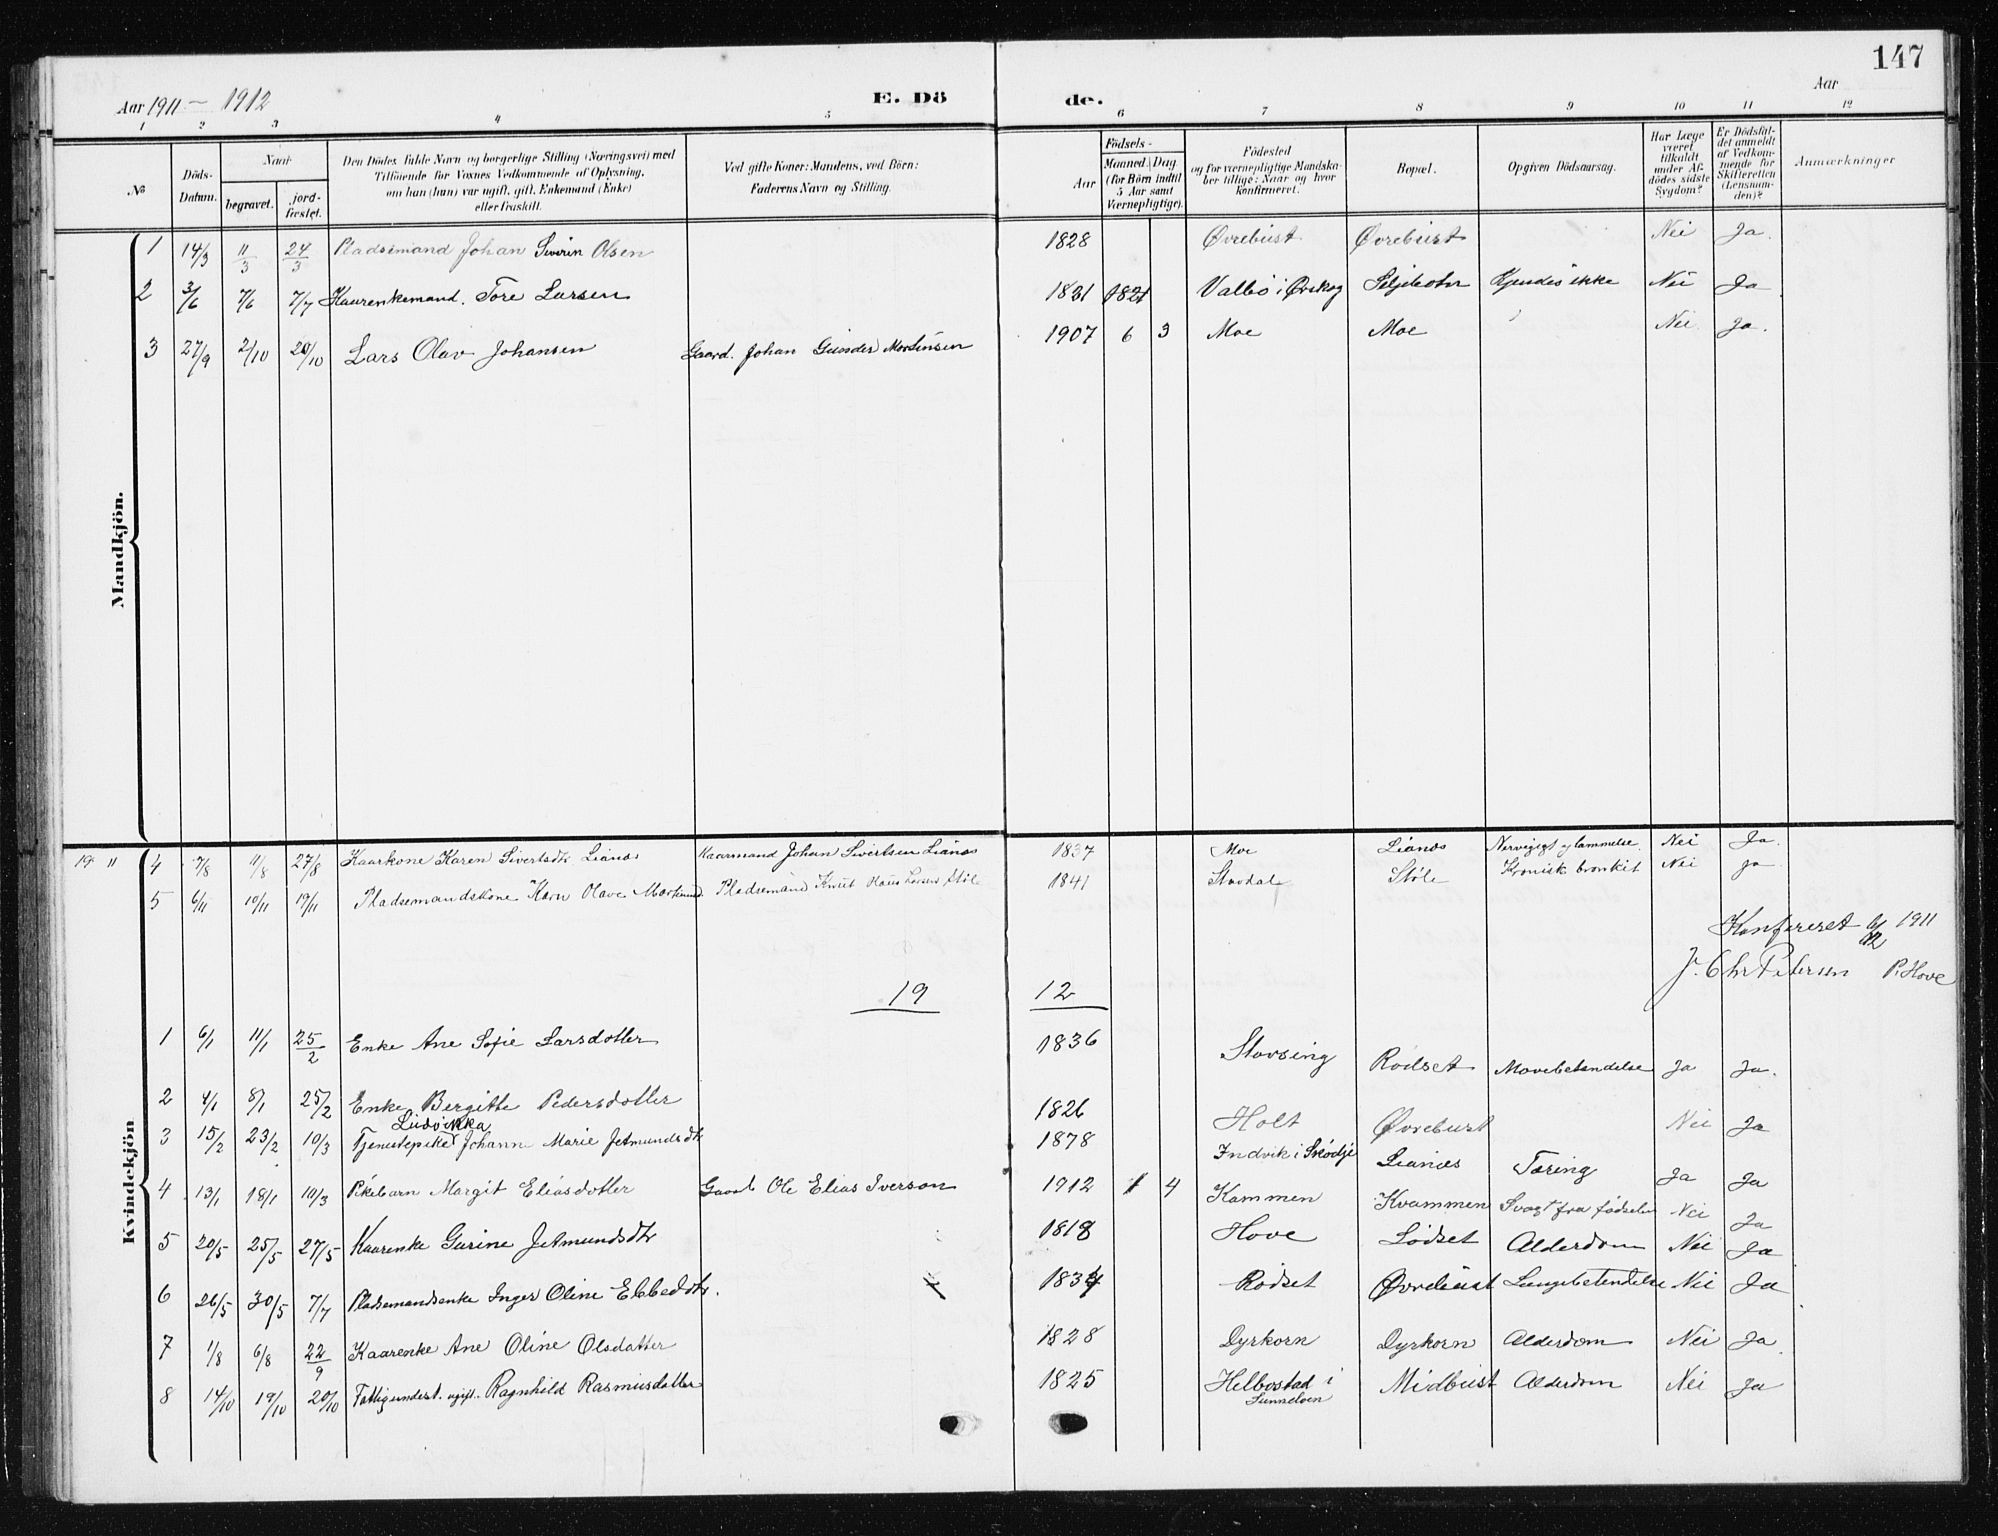 147
Aar 1911 – 1912 E. Dö de. Aar
1 2 3 4 5 6 7 8 9 10 11 12
No Döds-Datum. Naar begravet. jord-fæstet. Den Dödes fulde Navn og borgerlige Stilling (Næringsvei) med Tilföiende for Voxnes Vedkommende af Oplysning, om han (hun) var ugift, gift, Enkemand (Enke) eller fraskilt. Ved gifte Koner: Mandens, ved Börn: Faderens Navn og Stilling. Födsels- Aar Maaned. Dag. (for Börn indtil 5 Aar samt Værnepligtige). Födested og for værnepligtige Mandskaber tillige: Naar og hvor Konfirmeret. Bopæl. Opgiven Dödsaarsag. Har Læge været tilkaldt under Afdödes sidste Sygdom? Er Dödsfaldet anmeldt af Vedkommende for Skifteretten (Lensmanden)? Anmærkninger
Mandkjön.
1 14/3 11/3 24/3 Pladsemand Johan Siverin Olsen 1828 Øvrebust Øvrebust Nei Ja.
2 3/6 7/6 7/7 Kaarenkemand. Tore Larsen 1831 1821 Valbö i Ørskog Kjendes ikke Nei Ja
3 27/9 2/10 20/10 Lars Olav Johansen Gaard. Johan Gunder Mortinsen 1907 6 3 Moe Moe Nei Ja.
19 11 4 7/8 11/8 27/8 Kaarkone Karen Sivertsdtr Lianes Kaarmand Johan Sivertsen Lianes 1837 Moe Lianes Nervegigt og lammelse. Nei Ja.
5 6/11 10/11 19/11 Pladsemandskone Karn Olave Pladsemand Knut Larsen Støle 1841 Stavdal Støle Kronisk bronkit Nei ja
Konfereret 1911
J. Chr Petersen P. Hove
19 12
Kvindekjön
1 6/1 11/1 25/2 Enke Ane Sofie Larsdotter 1836 Stavseng Rødset Mavebetendelse Ja Ja.
2 4/1 8/1 25/2 Enke Bergitte Pedersdotter 1826 Holt Øvrebust Nei Ja
Ludvikka
3 15/2 23/2 10/3 Tjenestepike Johann Marie Jetmundsdtr 1878 Indvik i Skodje Lianes Tæring Ja Ja
4 13/1 18/1 10/3 Pikebarn Margit Eliasdotter Gaardb Ole Elias Iverson 1912 1 4 Kammen Kvammen Svagt fra fødselen Nei Ja
5 20/5 25/5 27/5 Kaarenke Gurine Jetmundsdtr 1818 Hove Lødset Alderdom Nei Ja
6 26/5 30/5 7/7 Pladsemandsenke Inger Oline Ebbesdtr. 1834 Rødset Øvrebust Lungebetendelse Nei Ja
7 1/8 6/8 22/9 Kaarenke Ane Oline Olsdatter 1828 Dyrkorn Dyrkorn Alderdom Nei Ja
8 14/10 19/10 20/10 Fattigunderst. ugift. Ragnhild Rasmusdatter 1825 Helbostad i Sunnelven Midbust Alderdom Nei Ja